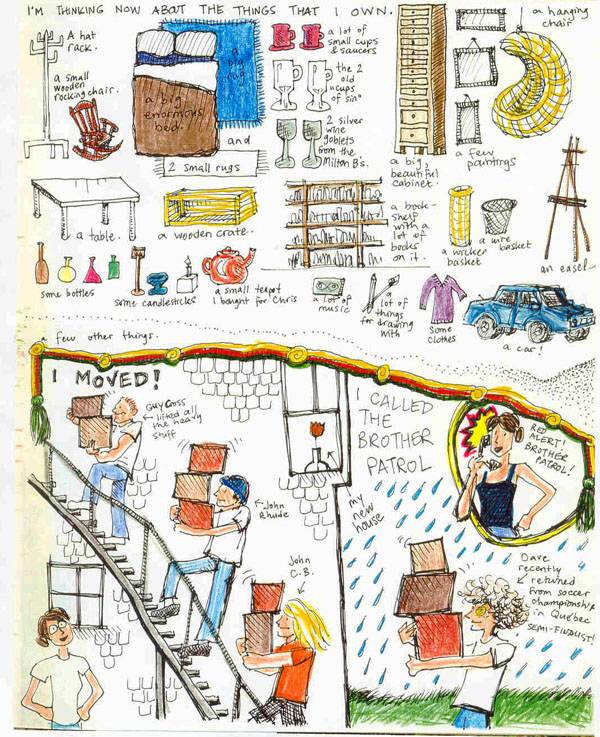 I'M THINKING NOW ABOUT THE THINGS THAT I OWN.
A hat
rack.
a small
wooden
rocking chair.
a big
rug
a big
enormous
bed.
and
2 small rugs
a lot of
small cups
& saucers
the 2
old "cups
of sin"
2 silver
wine
goblets
from the
Milton B's.
a big,
beautiful
cabinet.
a few
paintings
a hanging
chair
a table.
a wooden crate.
a book-
shelf
with a
lot of
books
on it.
a wicker
basket
a wire
basket
an easel
some bottles
some candlesticks
a small teapot
I bought for Chris
a lot of
music
a
lot of
things
for drawing
with
Some
clothes
a car!
a few other things
I MOVED!
Guy Cross
lifted all
the heavy
stuff
John
Rhude
John
C.B.
my
new
house
I CALLED
THE
BROTHER
PATROL
RED
ALERT!
BROTHER
PATROL!
Dave
recently
returned
from soccer
championship
in Québec
SEMI-FINALIST!